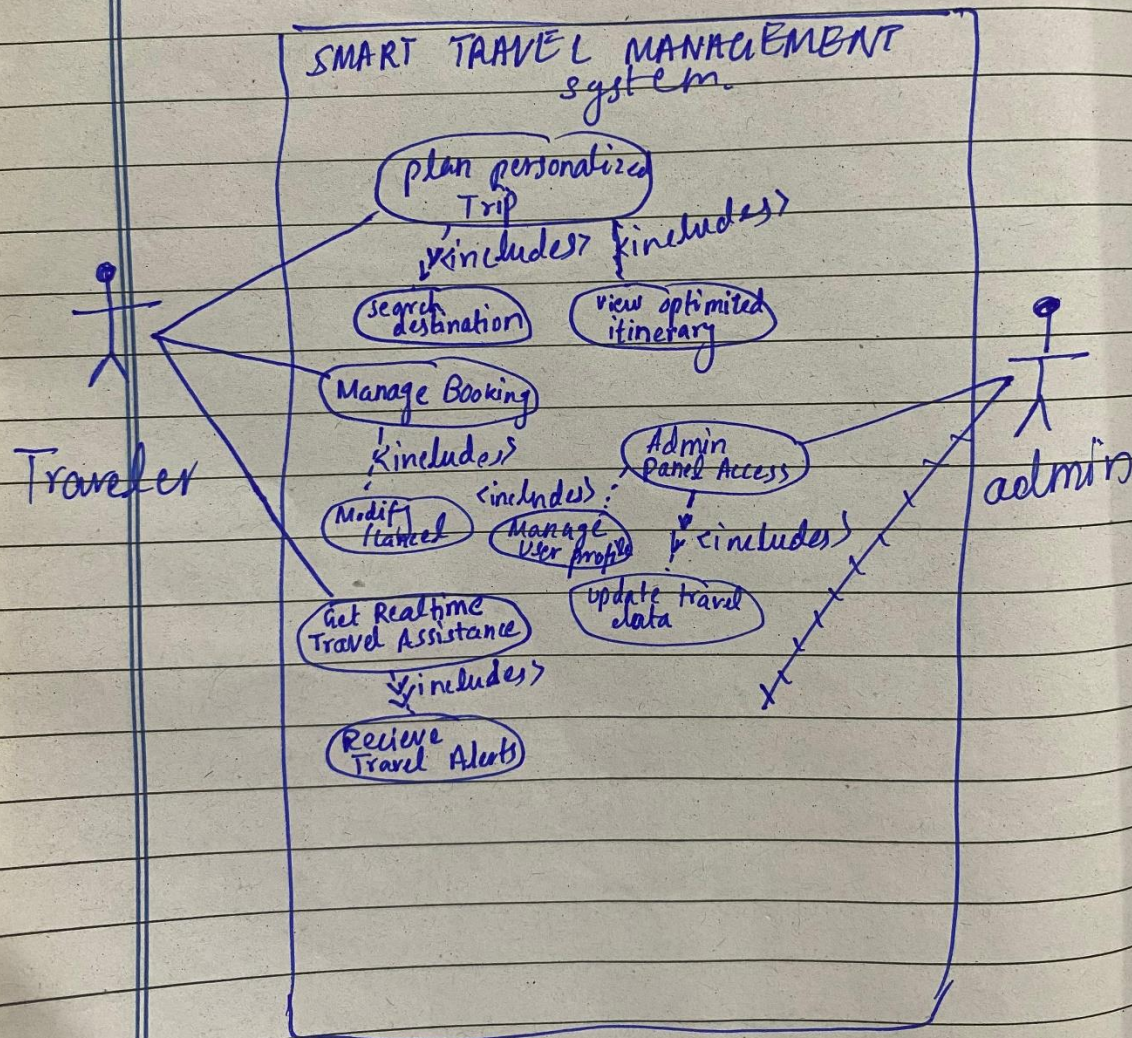 SMART TRAVEL MANAGEMENT
system.
plan personalized
Trip
<includes>
<includes>
search
destination
view optimized
itinerary
Manage Booking
<includes>
Modify
/Cancel
Traveler
admin
Admin
Panel Access
<includes>
Manage
User profile
<includes>
update travel
data
Get Realtime
Travel Assistance
<includes>
Recieve
Travel Alerts